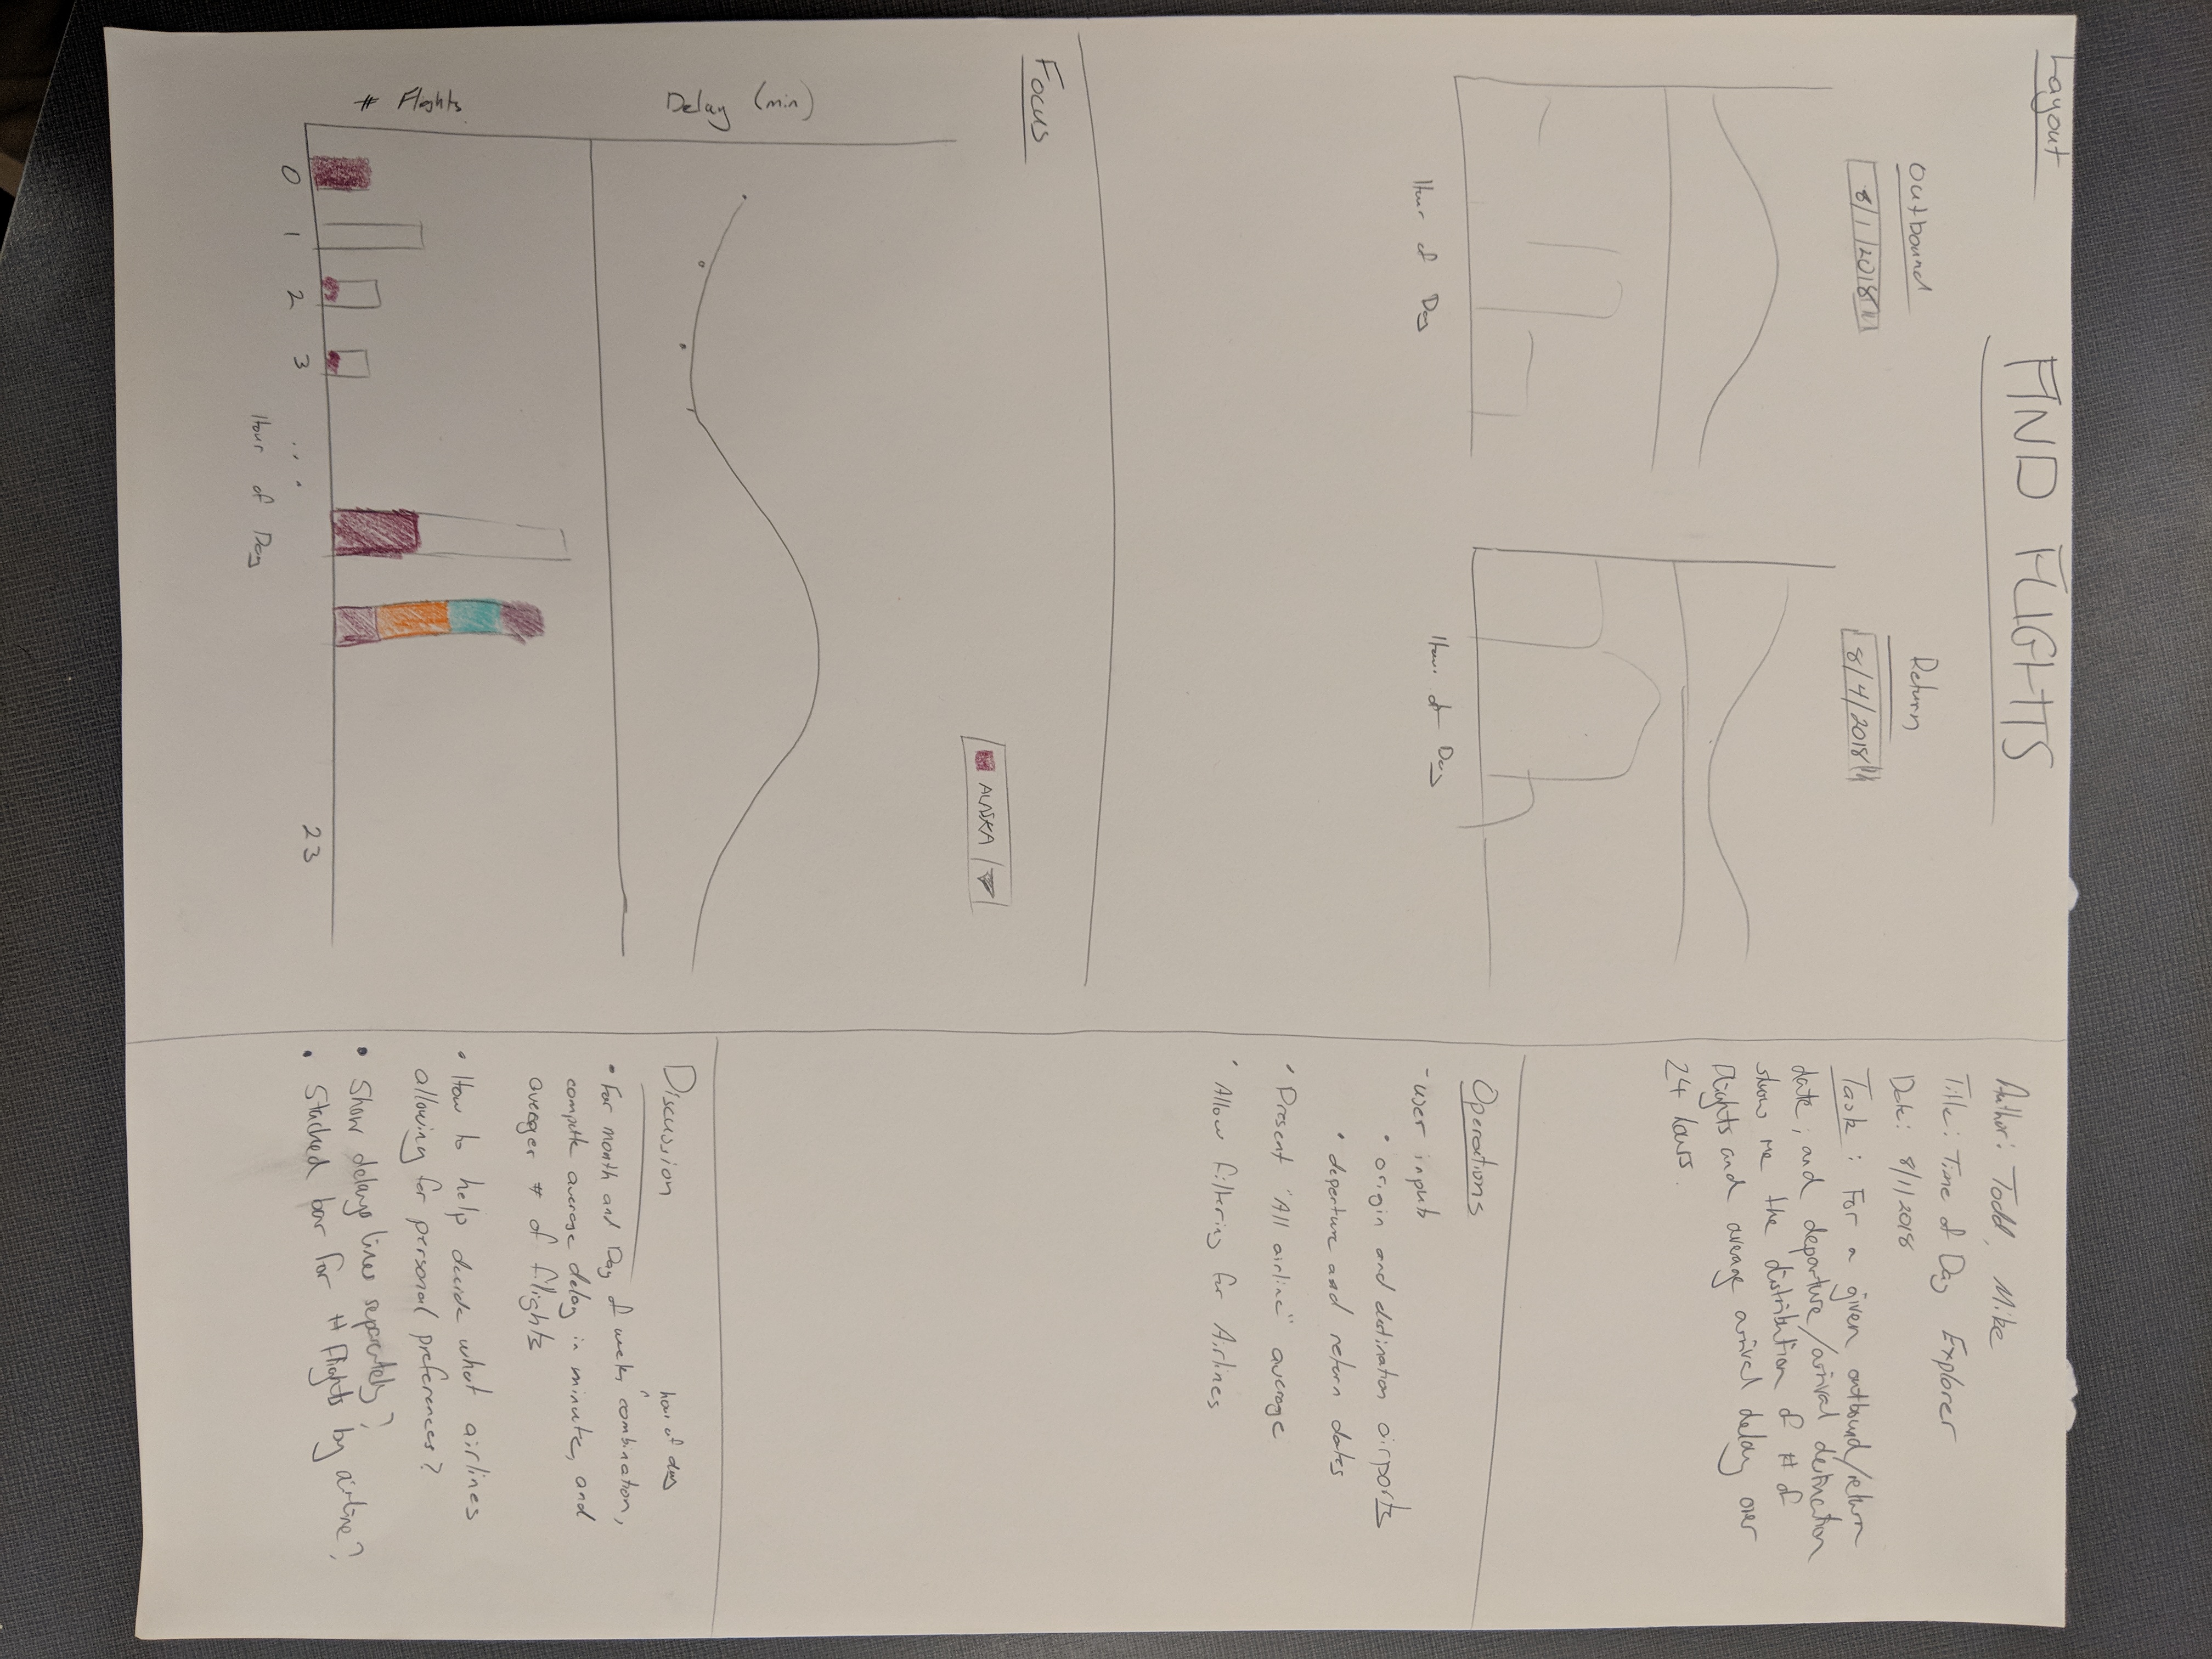 Layout
FIND FLIGHTS
Outbound
8/1/2018
Hour of Day
Return
8/4/2018
Hour of Day
Focus
ALASKA
Delay (min)
# Flights
0 1 2 3 ... 23
Hour of Day
Author: Todd, Mike
Title: Time of Day Explorer
Date: 8/1/2018
Task: For a given outbound/return
date, and departure/arrival destination
show me the distribution of # of
Flights and average arrival delay over
24 hours.
Operations
- user inputs
• origin and destination airports
• departure and return dates
• Present "All airline" average
• Allow filtering for Airlines
Discussion
hour of day
• For month and Day of week, combination,
compute average delay in minute, and
averager # of filights
• How to help decide what airlines
allowing for personal preferences?
• Show delays lines separately?
• Stacked bar for # Flights by airline?